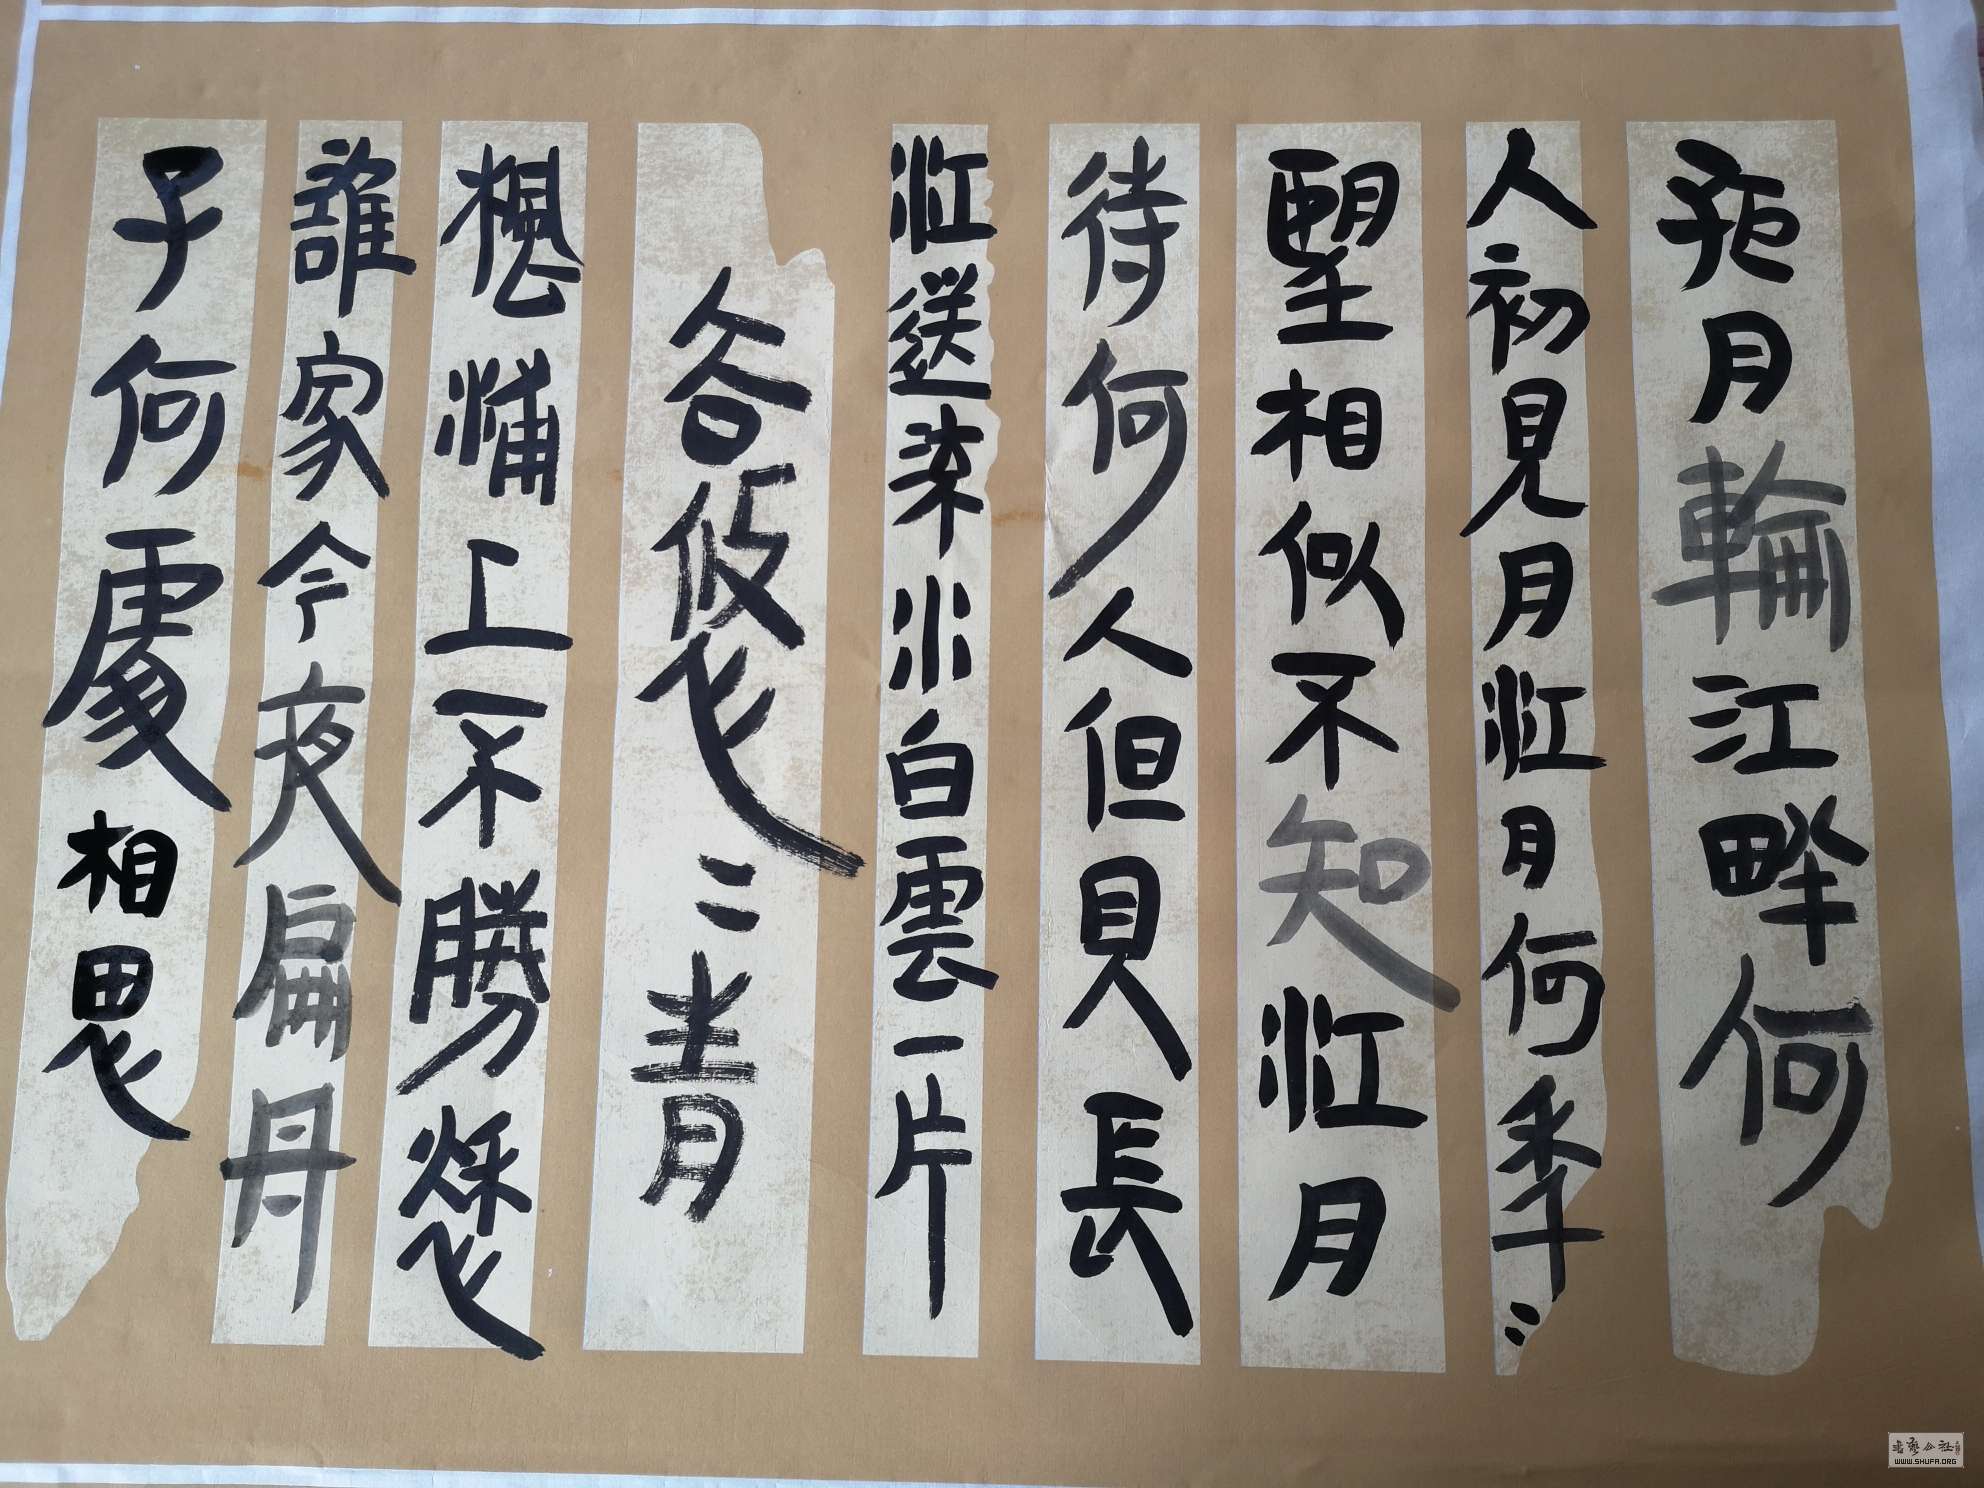 孤月輪江畔何
人初見月江月何秊〻
望相似不知江月
待何人但見長
江送流水白雲一片
去悠〻青
楓浦上不勝愁
誰家今夜扁舟
子何處相思
書藝公社
WWW.SHUFA.ORG